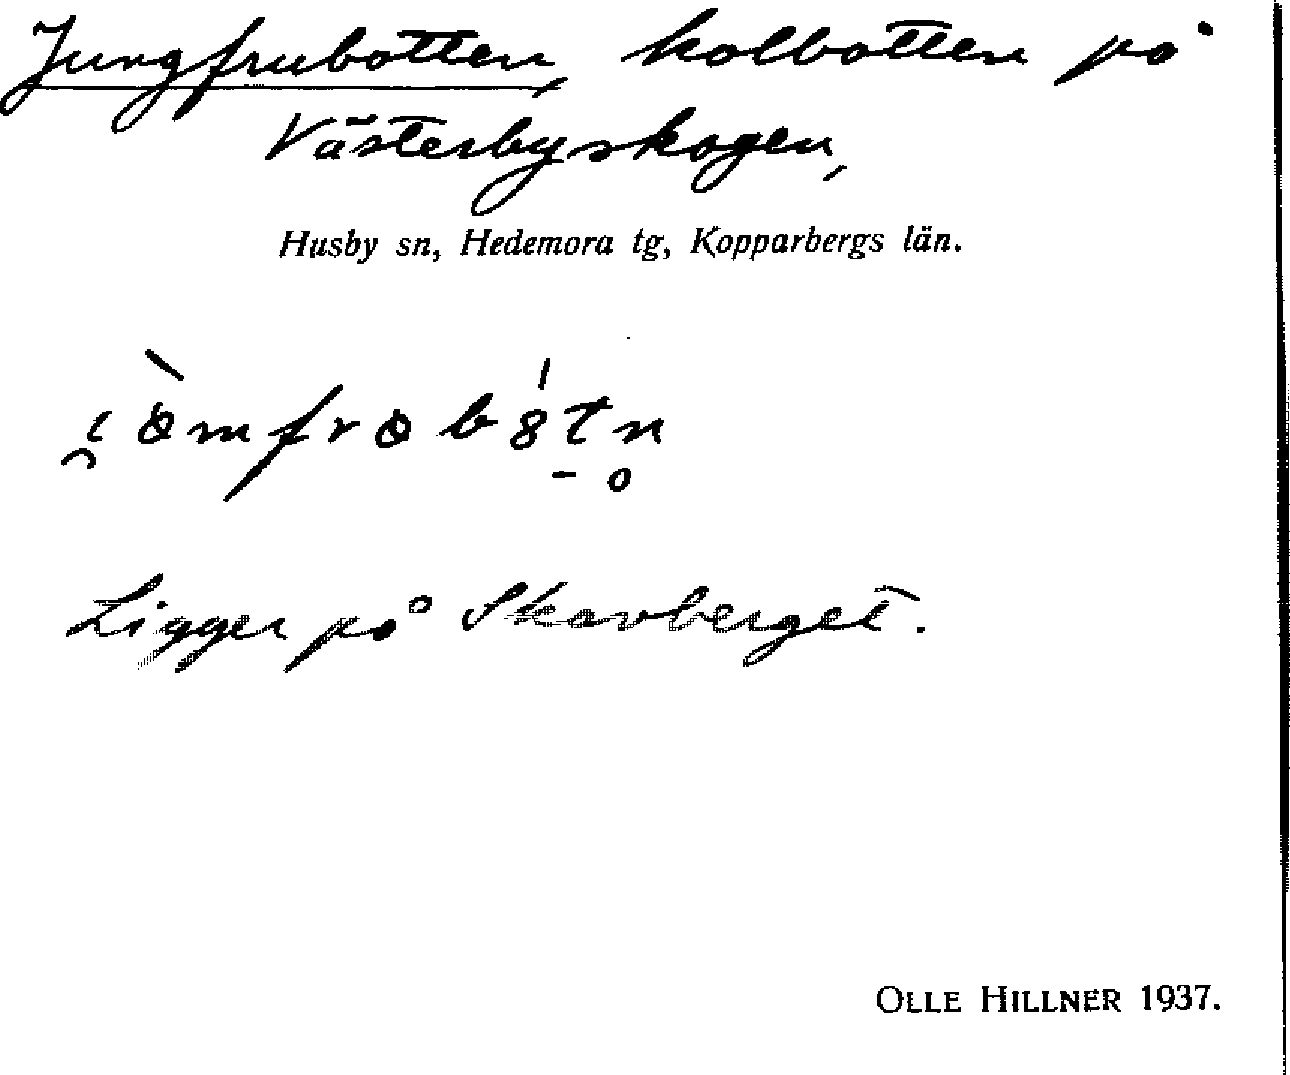 Jungfrubotten, kolbotten på
Västerbyskogen,
Husby sn, Hedemora tg, Kopparbergs län.
Ligger på Skavberget.
OLLE HILLNER 1937.